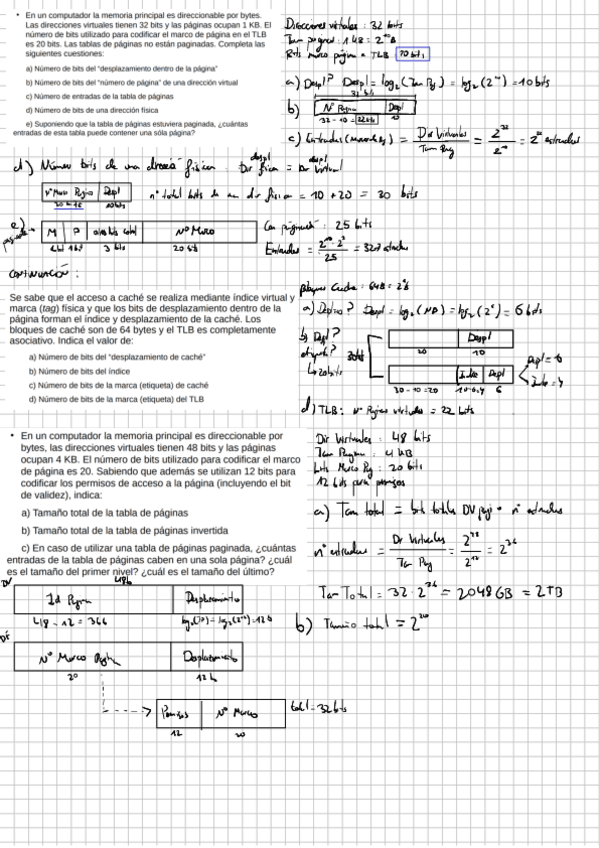 • En un computador la memoria principal es direccionable por bytes.
Las direcciones virtuales tienen 32 bits y las páginas ocupan 1 KB. El
número de bits utilizado para codificar el marco de página en el TLB
es 20 bits. Las tablas de páginas no están paginadas. Completa las
siguientes cuestiones:
a) Número de bits del "desplazamiento dentro de la página"
b) Número de bits del "número de página" de una dirección virtual
c) Número de entradas de la tabla de páginas
d) Número de bits de una dirección física
e) Suponiendo que la tabla de páginas estuviera paginada, ¿cuántas
entradas de esta tabla puede contener una sola página?
Direcciones virtuales: 32 bits
Tam paginas: 1 KB = 2^10 B
Bits marco pagina = TLB 20 bits
a) Despl? Despl = log2 (Tam Pag) = log2 (2^10) = 10 bits
b) Nº Pagina Despl
32 - 10 = 22 bits 10
c) Entradas = Dir Virtuales / Tam Pag = 2^32 / 2^10 = 2^22 entradas
d) Número bits de una dirección física: Dir física = Dir virtual
despl despl
Nº Marco Pagina Despl
20 bits 10 bits
nº total bits de una dir fisica = 10 + 20 = 30 bits
e)
M P otros bits control Nº Marco
1 bit 1 bit 3 bits 20 bits
Con paginación: 25 bits
Entradas = 2^10 · 2^3 / 25 = 327 entradas
CONTINUACIÓN:
Se sabe que el acceso a caché se realiza mediante índice virtual y
marca (tag) física y que los bits de desplazamiento dentro de la
página forman el índice y desplazamiento de la caché. Los
bloques de caché son de 64 bytes y el TLB es completamente
asociativo. Indica el valor de:
a) Número de bits del "desplazamiento de caché"
b) Número de bits del índice
c) Número de bits de la marca (etiqueta) de caché
d) Número de bits de la marca (etiqueta) del TLB
Bloques Cache: 64B = 2^6
= log2 (2^6) = 6 bits
b) Despl?
etiqueta?
↳ 20 bits
30 bits
Despl
20 10
Indice Despl
30 - 10 = 20 10-6=4 6
Despl = 6
d) TLB: Nº Paginas virtuales = 22 bits
• En un computador la memoria principal es direccionable por
bytes, las direcciones virtuales tienen 48 bits y las páginas
ocupan 4 KB. El número de bits utilizado para codificar el marco
de página es 20. Sabiendo que además se utilizan 12 bits para
codificar los permisos de acceso a la página (incluyendo el bit
de validez), indica:
a) Tamaño total de la tabla de páginas
b) Tamaño total de la tabla de páginas invertida
c) En caso de utilizar una tabla de páginas paginada, ¿cuántas
entradas de la tabla de páginas caben en una sola página? ¿cuál
es el tamaño del primer nivel? ¿cuál es el tamaño del último?
Dir Virtuales: 48 bits
Tam Pagina: 4 KB
bits Marco Pag: 20 bits
12 bits para permisos
a) Tam total = bits totales DV pagi · nº entradas
nº entradas = Dir Virtuales / Tam Pag = 2^48 / 2^12 = 2^36
Tam Total = 32 · 2^36 = 2048 GB = 2TB
b) Tamaño total = 2^20
DV 48b
Id Pagina Desplazamiento
48 - 12 = 36b log2(P) = log2(2^12) = 12 b
DF
Nº Marco Pagina Desplazamiento
20 12 b
Permisos Nº Marco
12 20
total = 32 bits